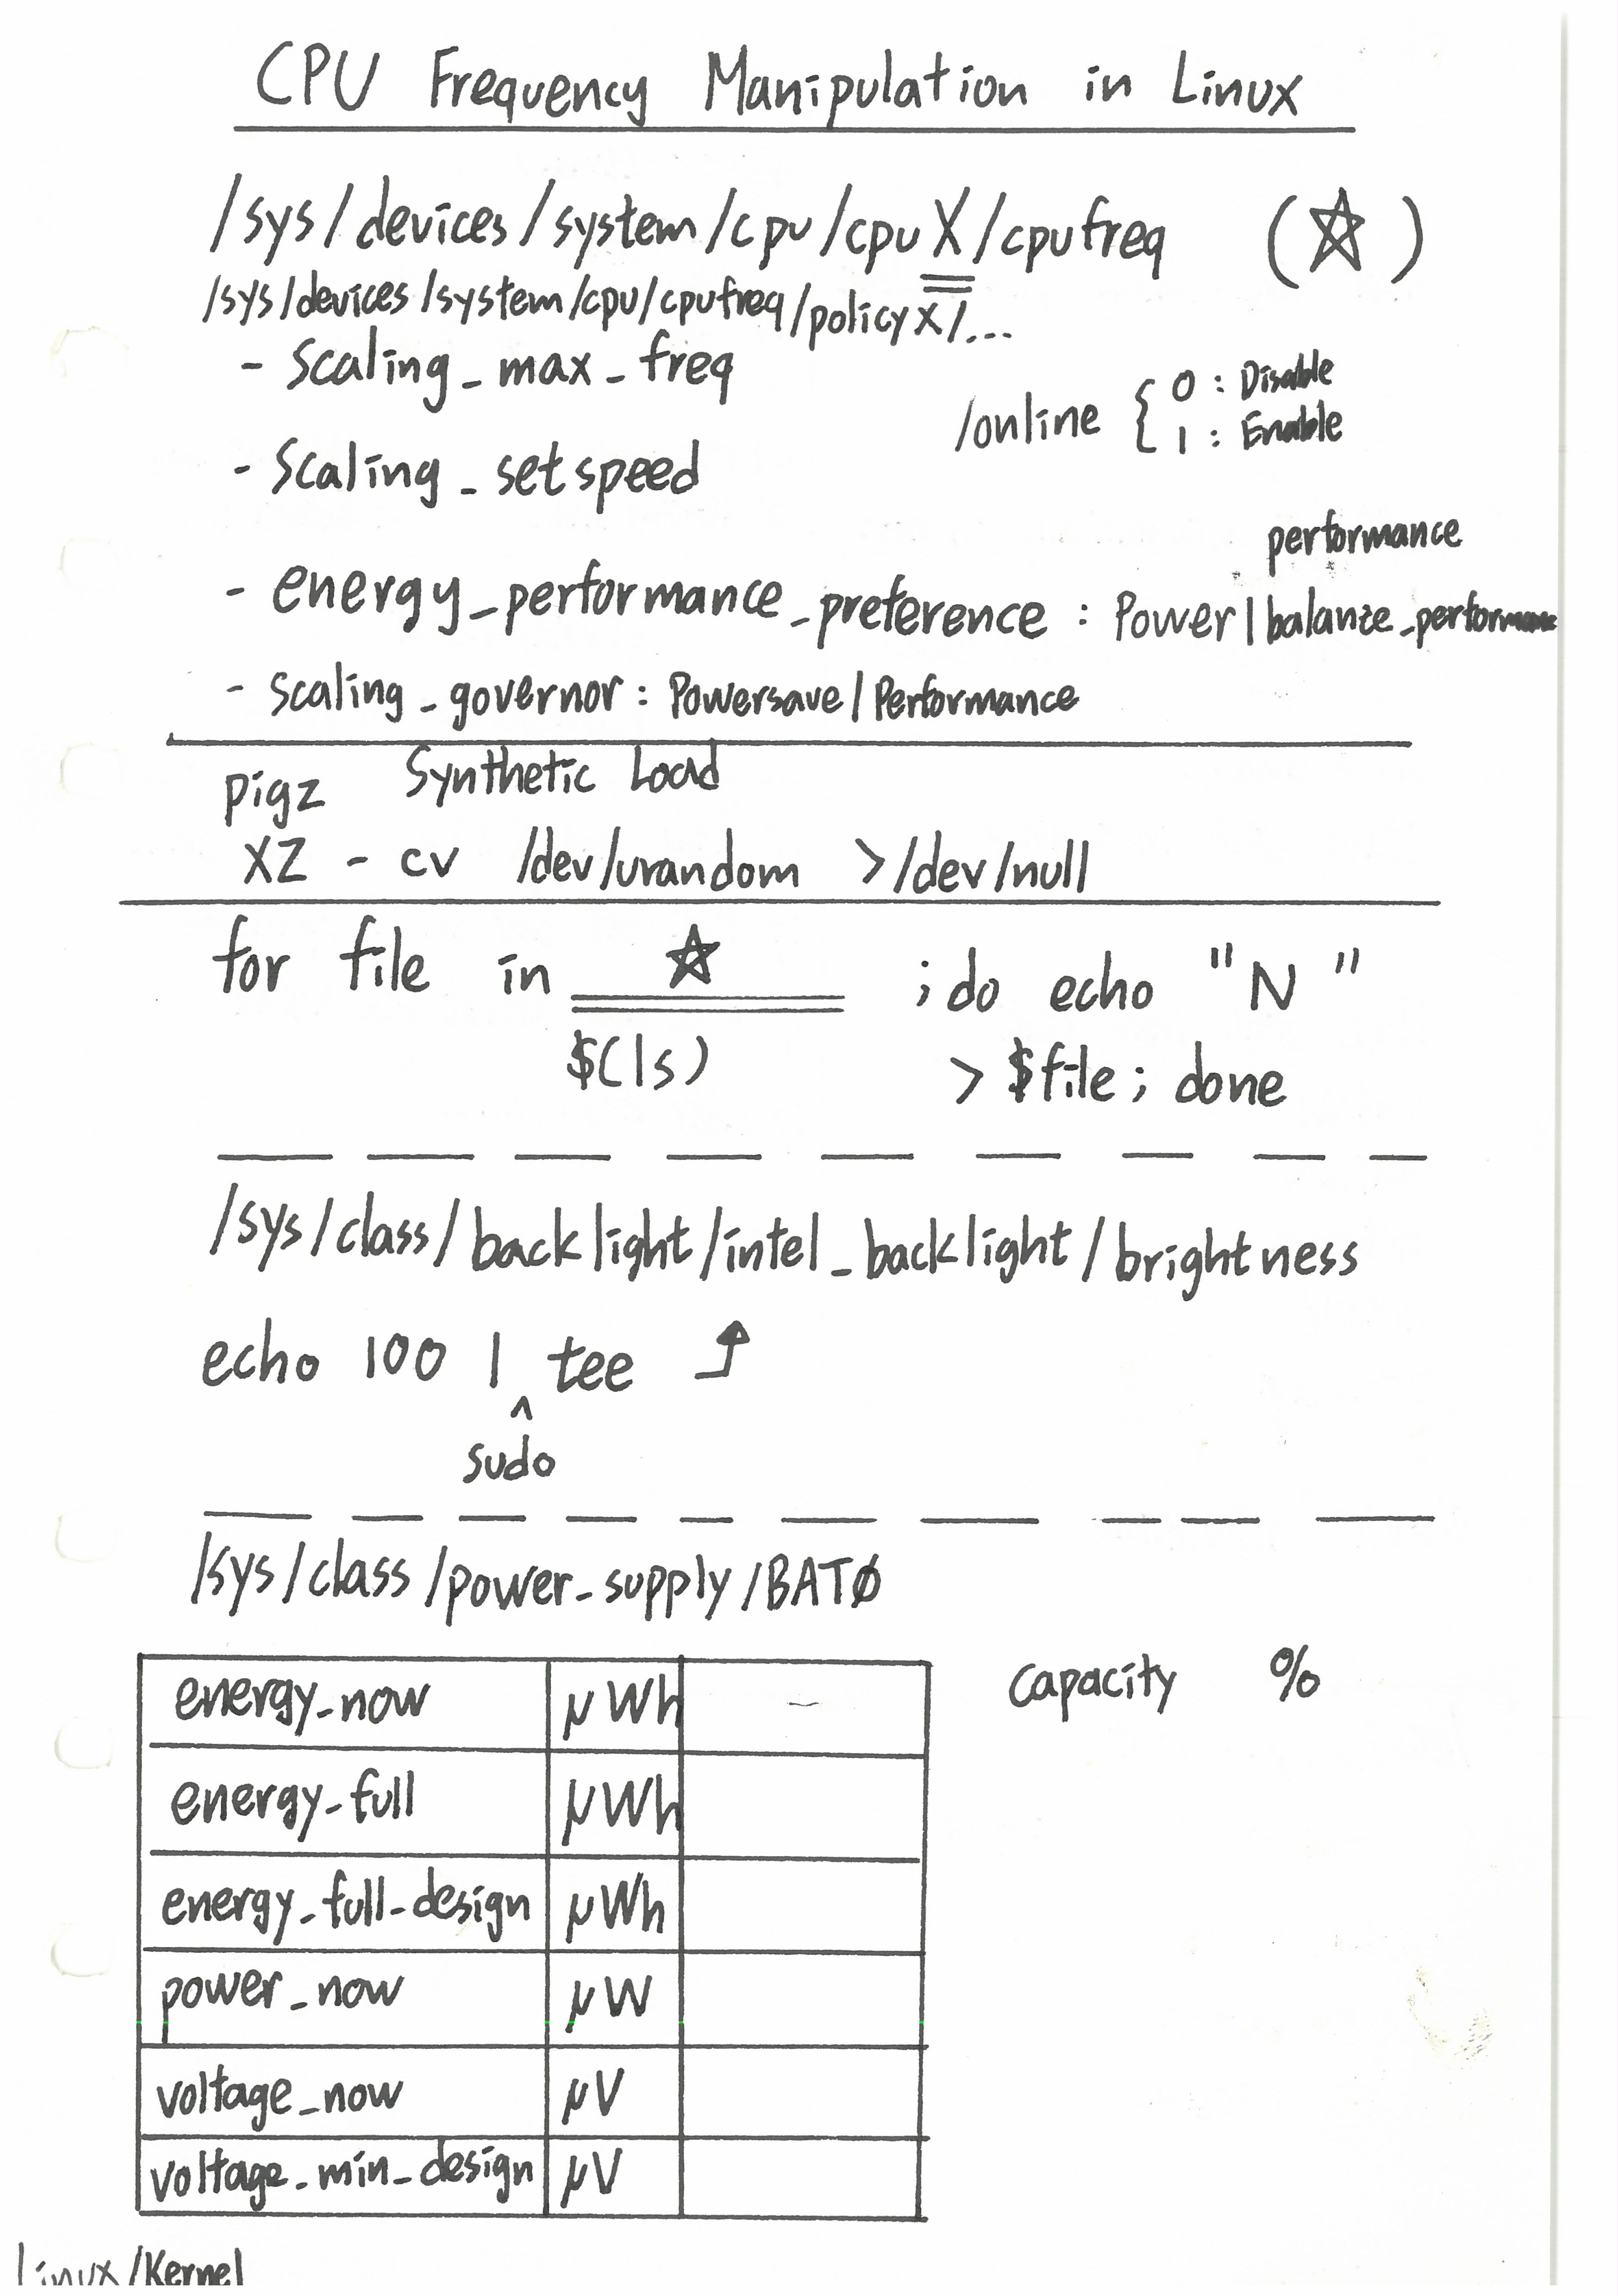 CPU Frequency Manipulation in Linux
/sys/devices/system/cpu/cpuX/cpufreq (☆)
/sys/devices/system/cpu/cpufreq/policyX/...
- scaling_max_freq
/online { 0 : Disable
1 : Enable
- Scaling_setspeed
performance
- energy_performance_preference : Power | balance_performance
- scaling_governor : Powersave / Performance
pigz Synthetic Load
XZ - cv /dev/urandom >/dev/null
for file in ☆ ; do echo "N"
$(ls) > $file ; done
/sys/class/backlight/intel_backlight/brightness
echo 100 | tee ⬏
^
sudo
/sys/class/power_supply/BAT0
capacity %
energy_now μWh
energy_full μWh
energy_full_design μWh
power_now μW
voltage_now μV
voltage_min_design μV
linux/Kernel